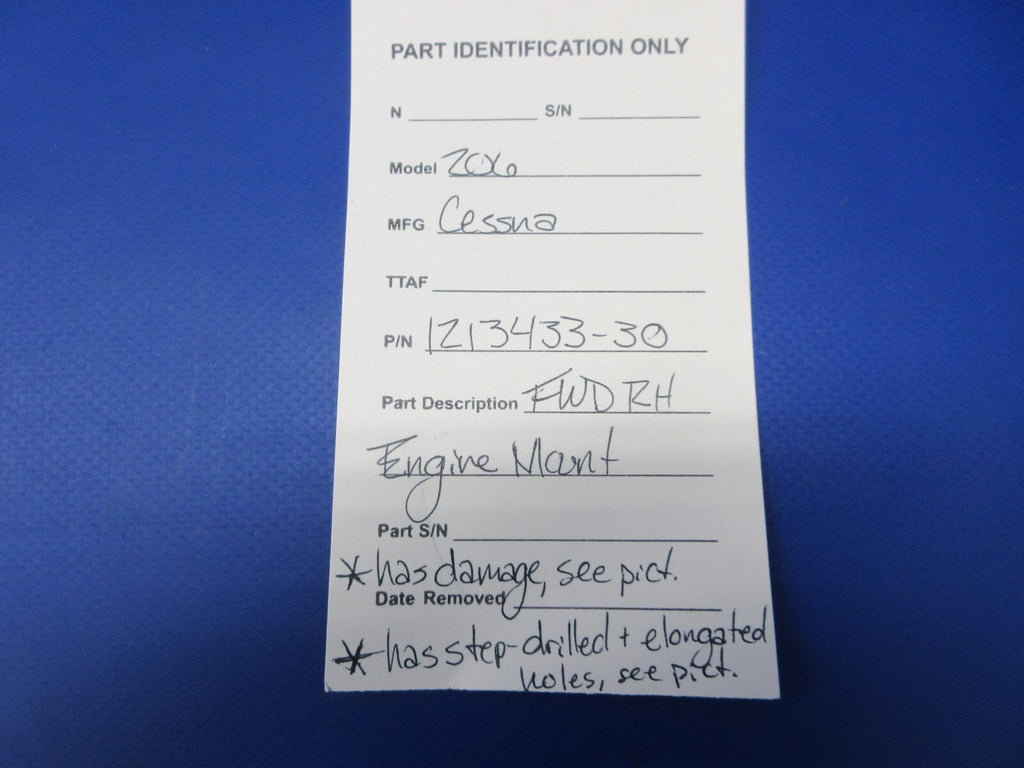 PART IDENTIFICATION ONLY
N S/N
Model 206
MFG Cessna
TTAF
P/N 1213433-30
Part Description FWD RH
Engine Mount
Part S/N
* has damage, see pict.
Date Removed
* has step-drilled + elongated
holes, see pict.